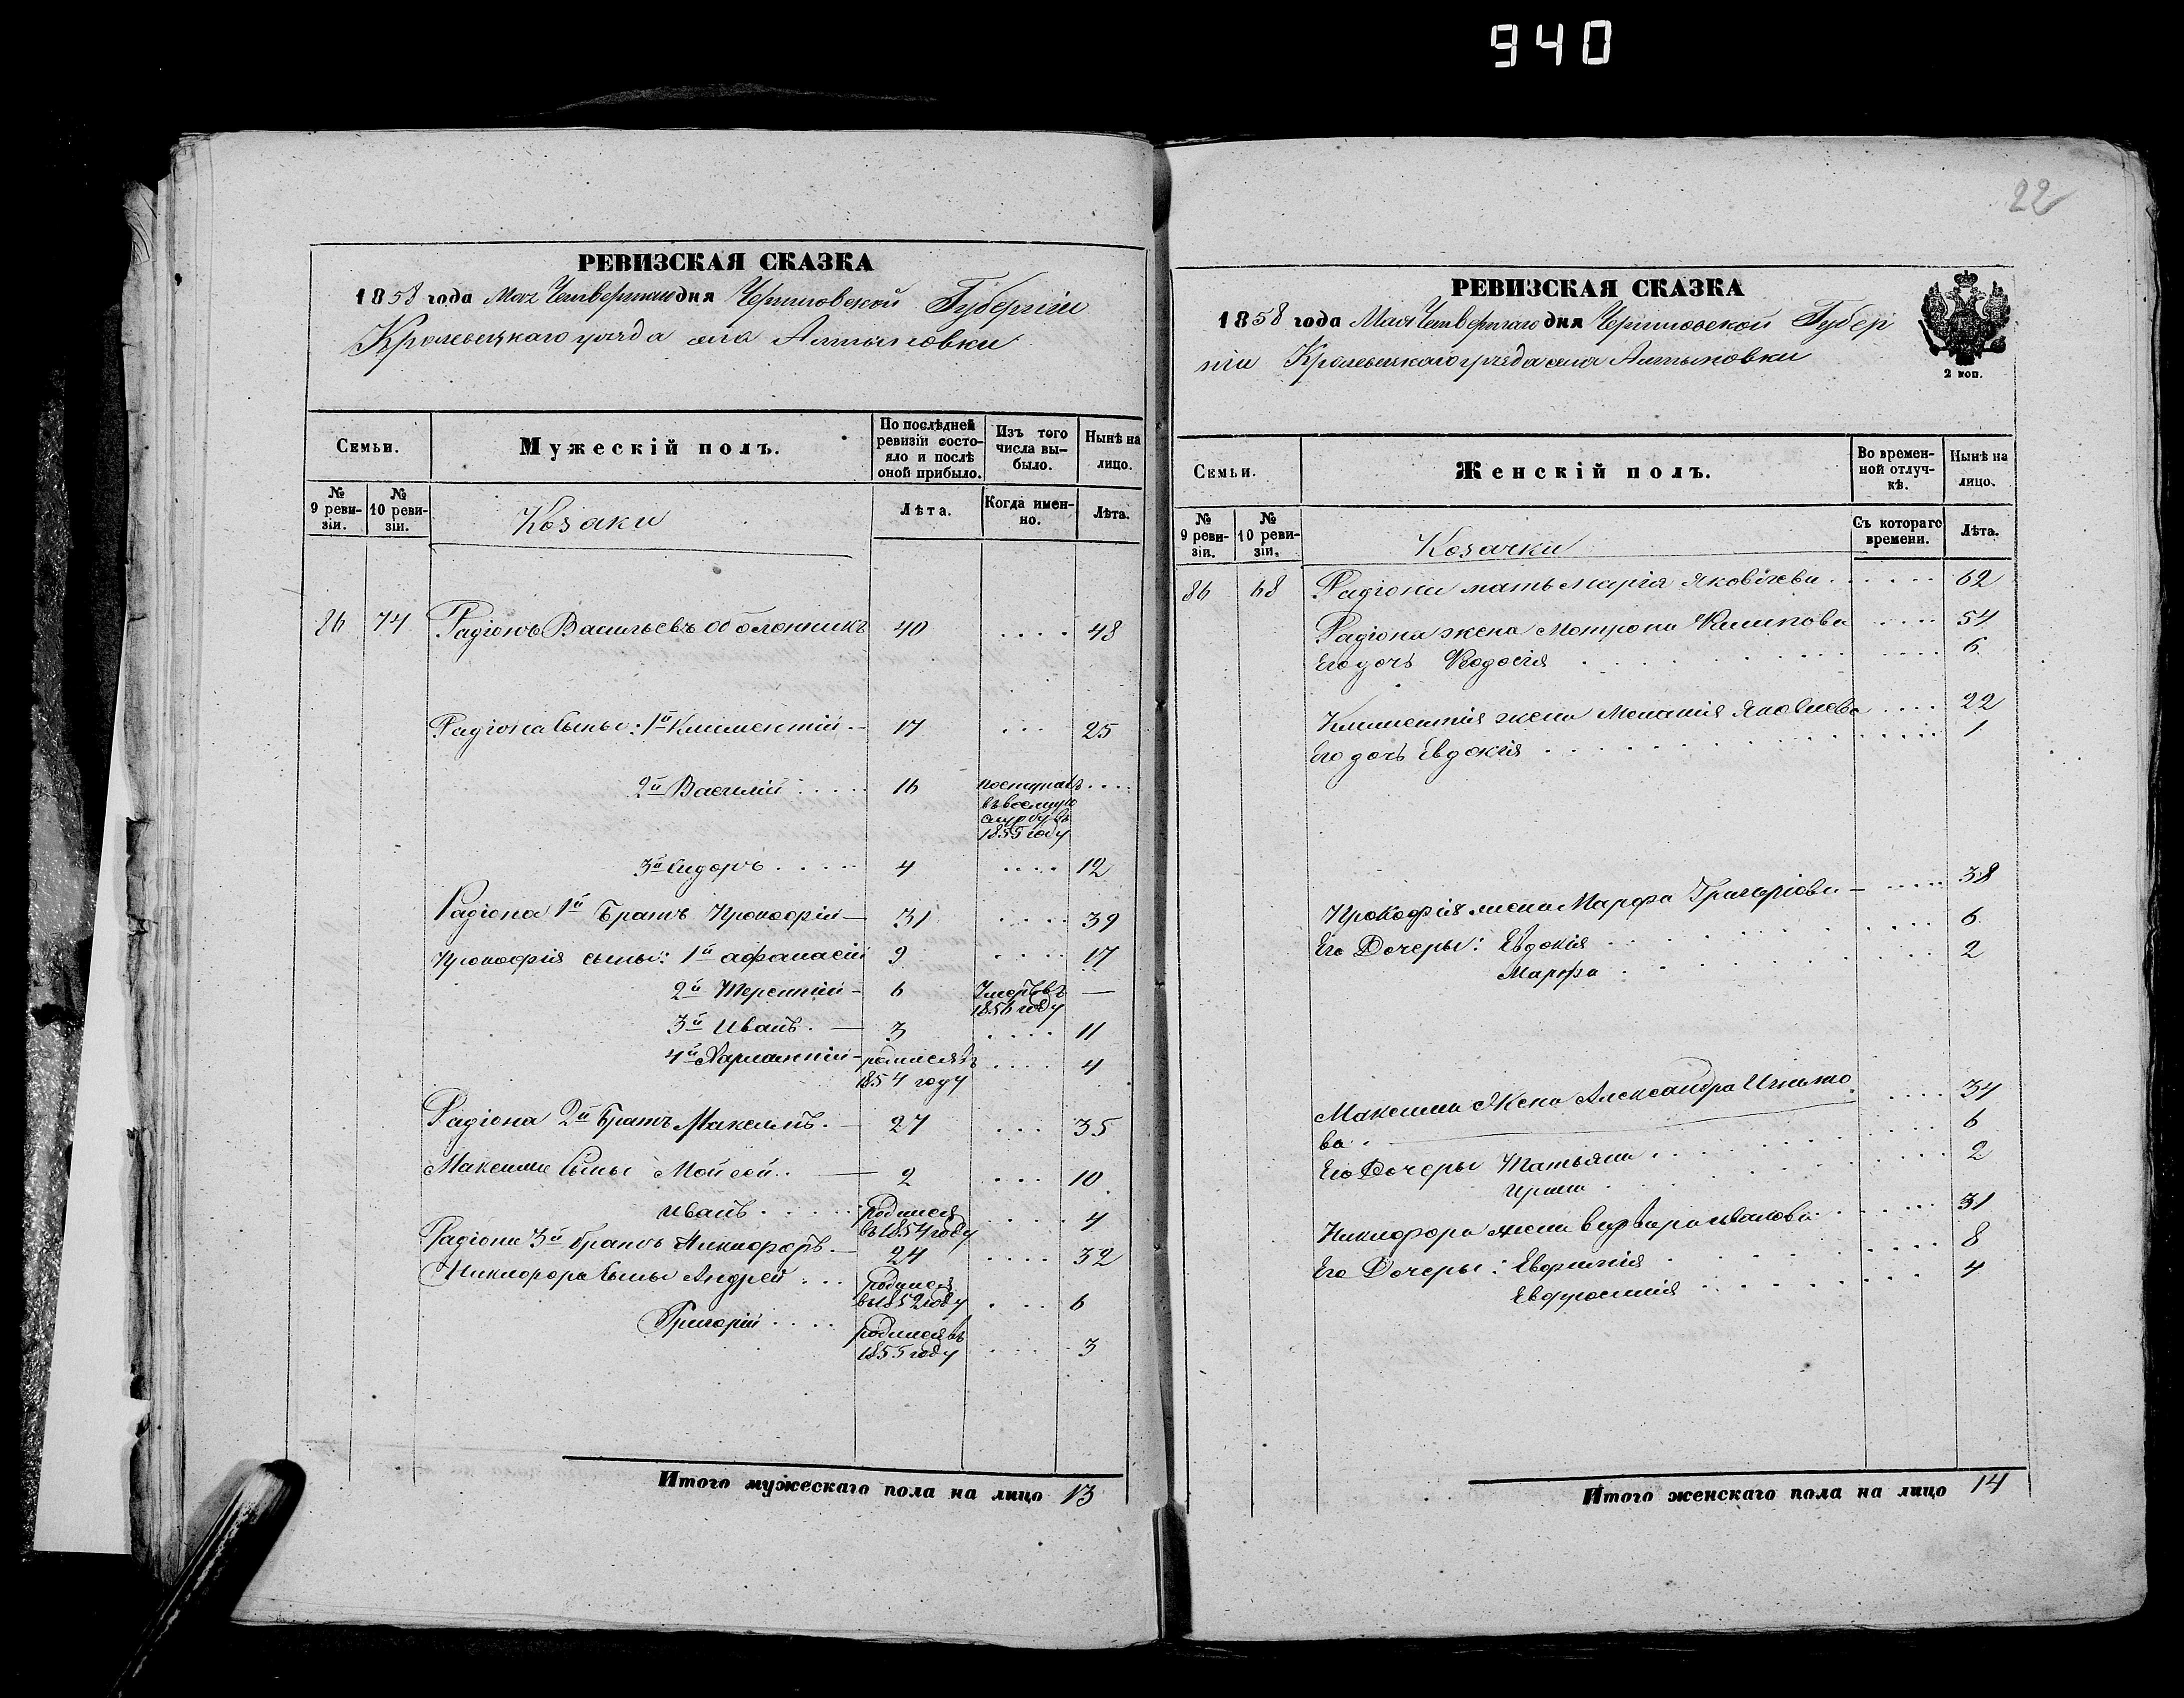 940
РЕВИЗСКАЯ СКАЗКА
1858 года Мая Четвертаго дня Черниговской Губерніи
Кролевецкаго уезда села Алтыновки
Семьи.
Мужескій полъ.
По послѣдней ревизіи состояло и послѣ оной прибыло.
Изъ того числа выбыло.
Нынѣ на лицо.
№ 9 ревизіи.
№ 10 ревизіи.
Козаки
Лѣта.
Когда именно.
Лѣта.
86 74 Радіонъ Васильевъ Оболонникъ 40 .... 48
Радіона Сыны: 1й Климентий 17 ... 25
2й Василій ..... 16 поступилъ ....
въ военную
службу въ
1855 году
3й Сидоръ ..... 4 .... 12
Радіона 1й Братъ Прокофій — 31 .... 39
Прокофія сыны: 1й афанасій 9 .... 17
2й Терентий - 6 Умеръ въ —
1856 году
3й Иванъ. — 3 .... 11
4й Харлампий - родился въ .... 4
1854 году
Радіона 2й братъ Максимъ. — 27 ... 35
Максима Сыны Мойсей. — 2 ... 10
иванъ ..... родился .... 4
въ 1854 году
Радіона 3й братъ Никифоръ. — 24 .... 32
Никифора Сыны Андрей ... родился
въ 1852 году .... 6
Григорій .... родился въ
1855 году .... 3
Итого мужескаго пола на лицо 13
22
РЕВИЗСКАЯ СКАЗКА
1858 года Мая Четвертаго дня Черниговской Губер
ніи Кролевецкаго уезда села Алтыновки
2 коп.
Семьи.
Женскій полъ.
Во временной отлучкѣ.
Нынѣ на лицо.
№ 9 ревизіи.
№ 10 ревизіи.
Козачки
Съ котораго времени.
Лѣта.
86 68 Радіона мать Марія Яковлева ...... 62
Радіона жена Мотрона .... 54
Его дочь Феодосія .... 6
Климентия жена Меланія Яковлева .... 22
Его дочь Евдокія .... 1
Прокофія жена Марфа Григоріева — ..... 38
Его Дочеры: Евдокія .... 6
Марфа .... 2
Максима Жена Александра Игнато .... 34
ва.
Его Дочеры Татьяна .... 6
Ирина .... 2
Никифора жена варвара иванова .... 31
Его Дочеры: Евфимія .... 8
Евфросинія .... 4
Итого женскаго пола на лицо 14